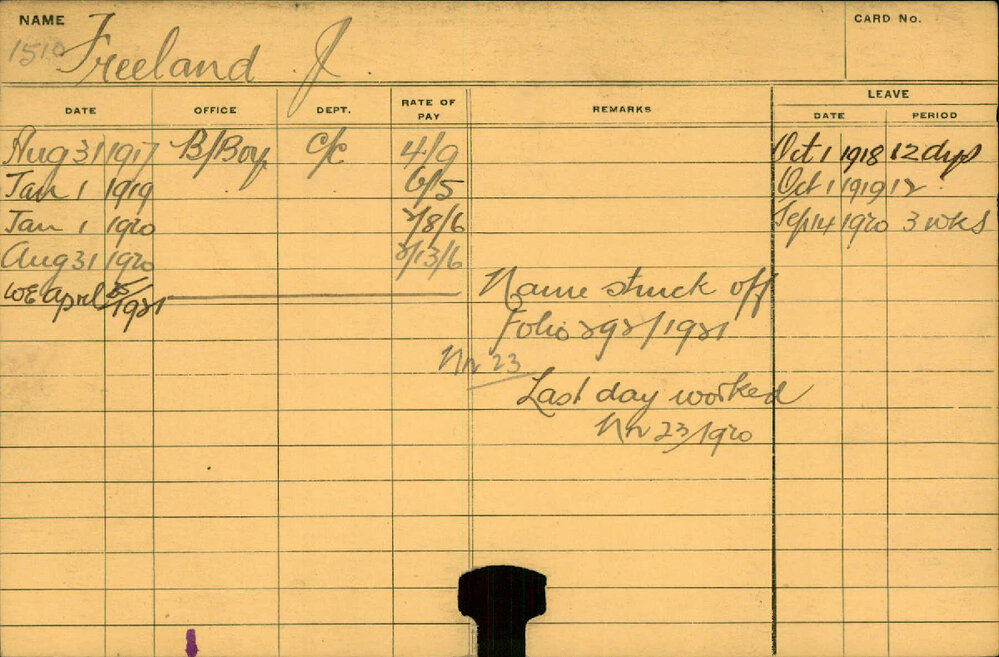 NAME
CARD No.
1510 Freeland J
LEAVE
DATE OFFICE DEPT. RATE OF PAY REMARKS DATE PERIOD
Aug 31 1917 B/Boy C/C 4/9 Oct 1 1918 12 dys
Jan 1 1919 6/5 Oct 1 1919 12
Jan 1 1920 2/8/6 Sep 14 1920 3 wks
Aug 31 1920 2/13/6
WE april 1921 Name struck off
Folio 292/1921
Nr 23
Last day worked
Nr 23/1920